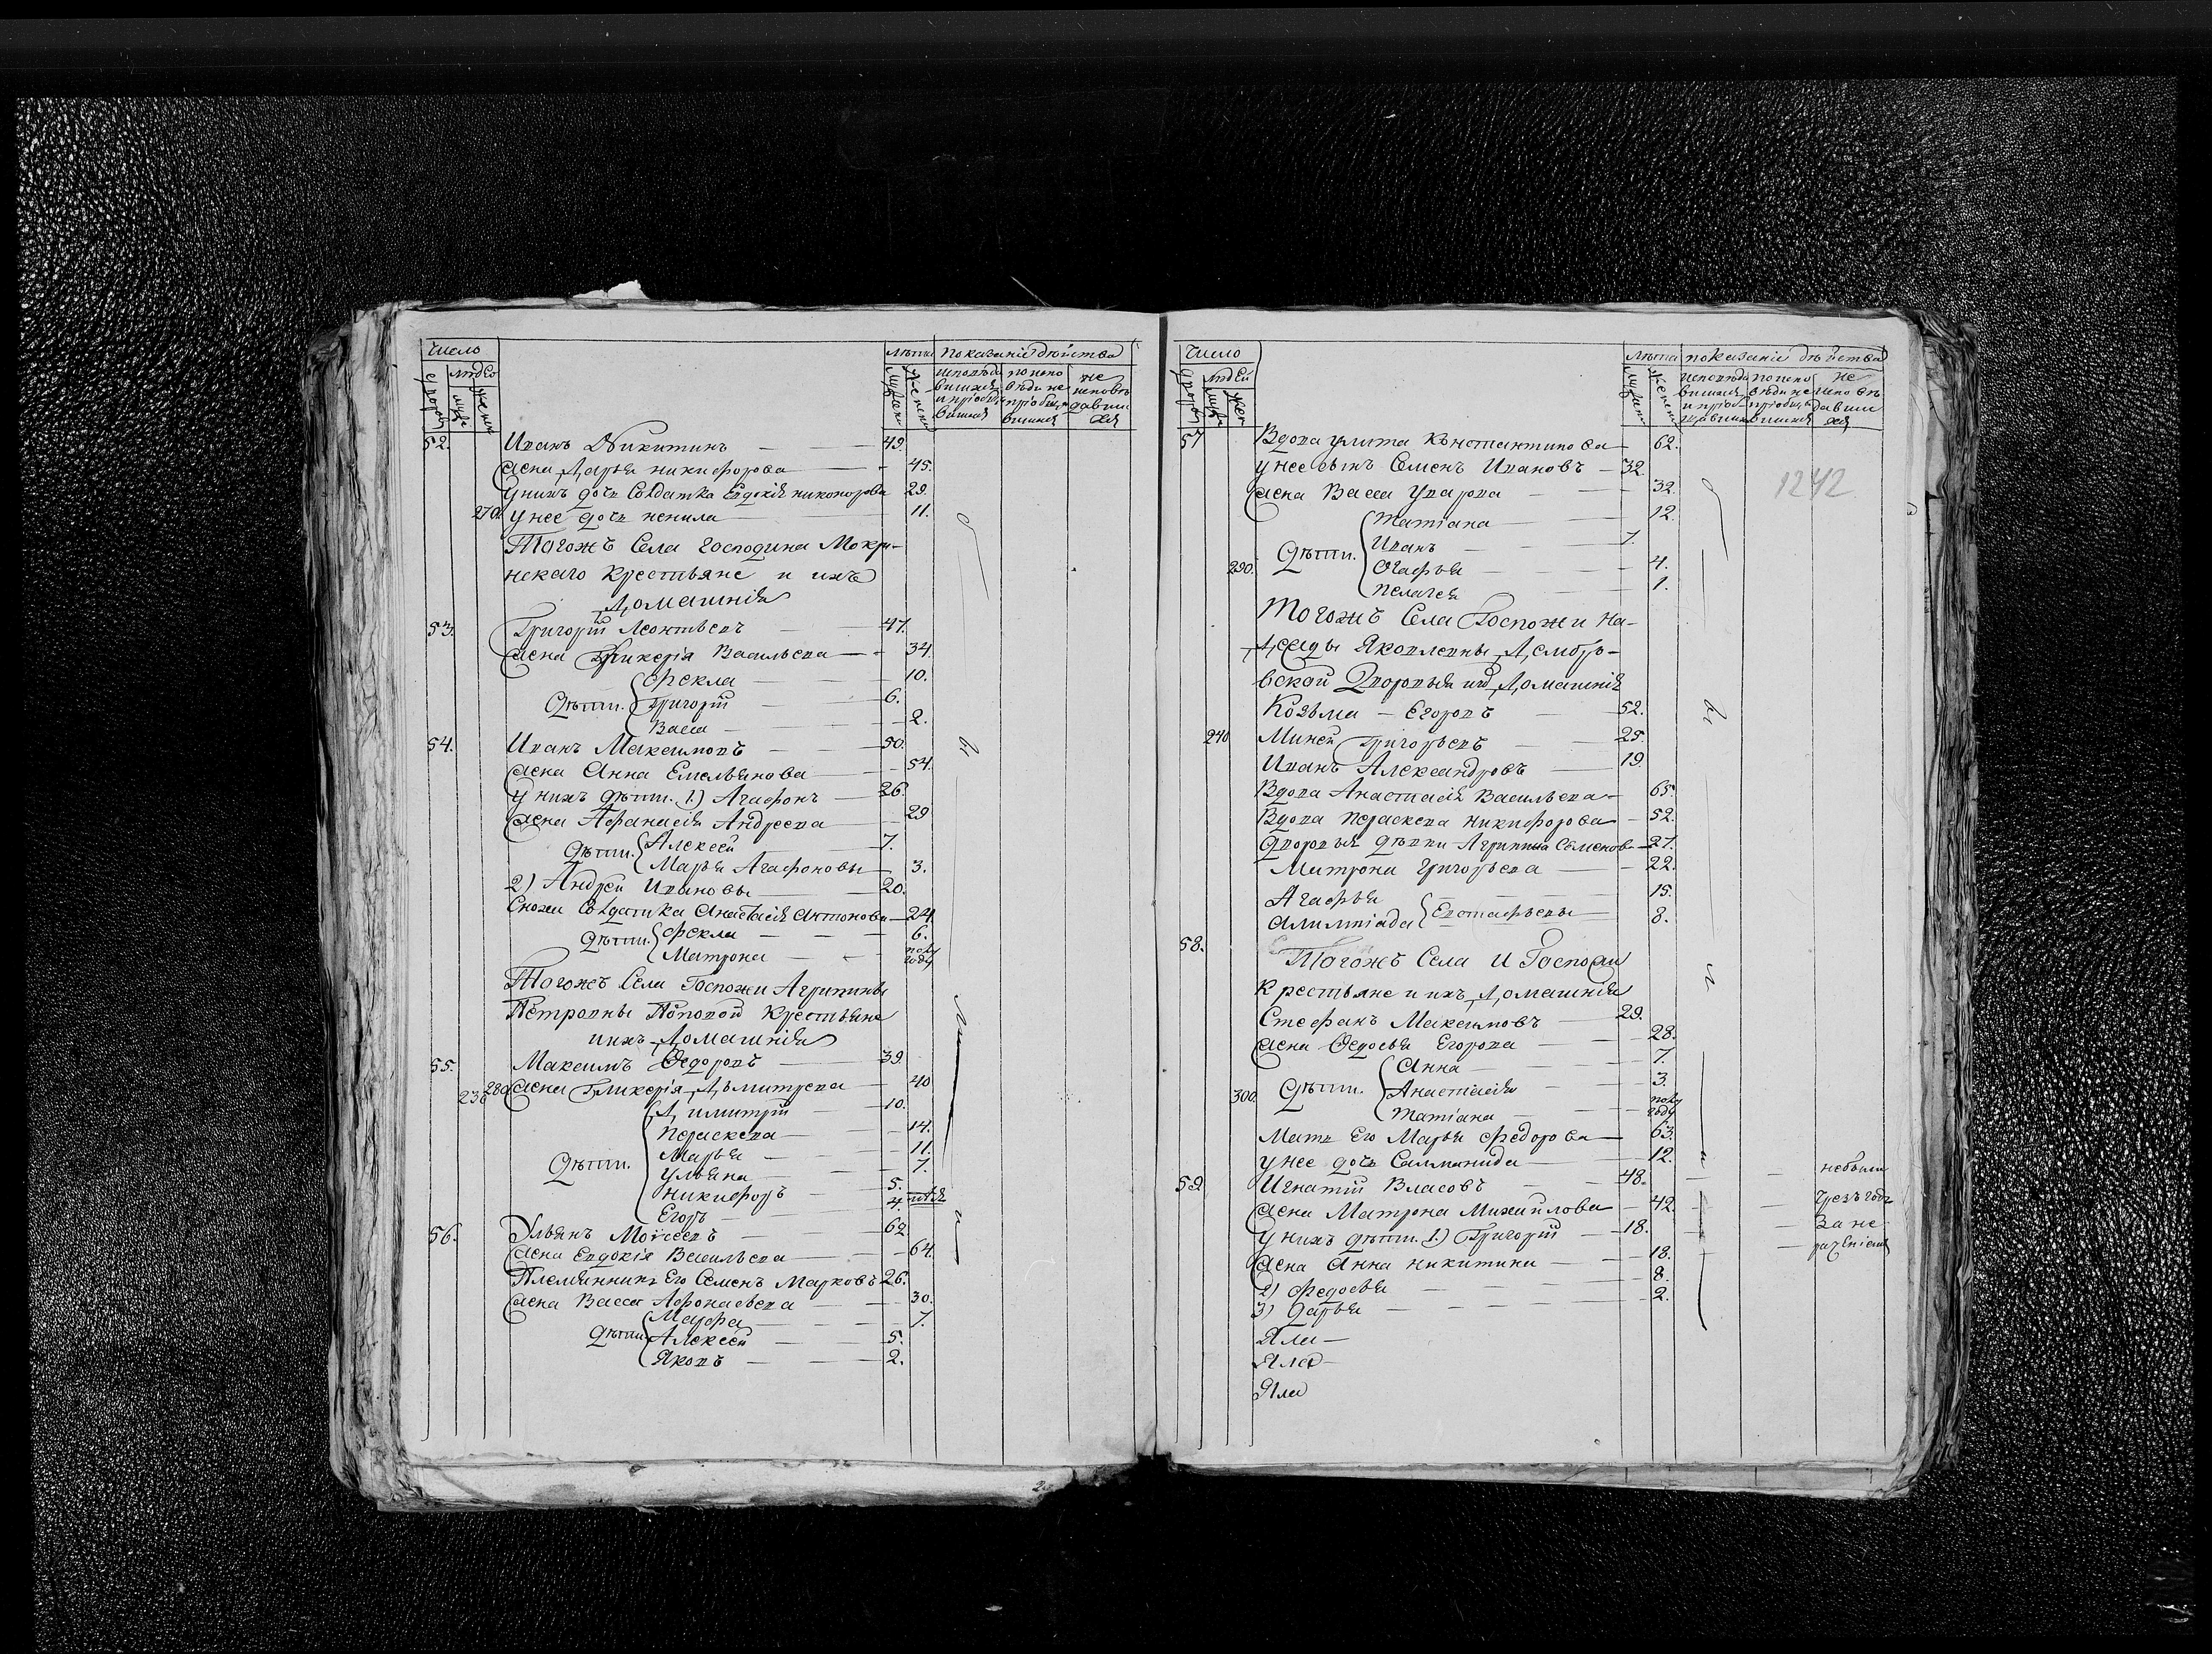 Число
людей
дворовъ
муже
женск
лѣта
мужеск
женска
показаніе дѣйства
исповѣда
вшихся
и пріобщи
вшихся
по испо
вѣди не
пріобщи
вшихся
не
исповѣ
давши
хся
52. Иванъ Никитинъ — 49.
жена Дарья никифорова — 45.
у нихъ дочь Солдатка Евдокія никонорова 29.
270. у нее дочь ненила — 11.
Тогожъ Села господина Мокри-
нскаго Крестьяне и ихъ
Домашнія
53. Григорій Леонтьевъ — 47.
жена Гликерія Васильева — 34.
Ѳекла — 10.
Дѣти. Григорій — 6.
Васса — 2.
54. Иванъ Максимовъ — 50.
жена Анна Емельянова — 54.
у нихъ дѣти. 1.) Агафонъ — 26.
жена Афанасія Андреева — 29
дѣти. Алексей — 7.
Марья Агафоновы — 3.
2) Андрей Ивановы — 20.
Сноха Солдатка Анастасія Антонова — 24.
дѣти. Фекла — 6.
Матрона — полу
году
Тогожъ Села Госпожи Агрипины
Петровны Поповой Крестьяне
ихъ Домашнія
55. Максимъ Ѳедоровъ — 39.
230 280 жена Гликерія Дьмитрева — 40
Димитрій — 10.
Параскева — 14.
Марья — 11.
Дѣти. Ульяна — 7.
никифоръ — 5.
Егоръ — 4.
56. Ульянъ Моѵсеевъ — 62.
жена Евдокія Васильева — 64.
Племянникъ Его Семенъ Марковъ 26.
жена Васса Афонасьева — 30.
Марфа — 7.
дѣти Алексей — 5.
Яковъ — 2.
Число
людей
дворовъ
муже
жен
лѣта
мужеск
женска
показаніе дѣйства
исповѣда
вшихся
и пріоб
щившихся
по испо
вѣди не
пріобщи
вшихся
не
испо вѣ
давши
хся
57 Вдова улита Кънстантинова — 62.
у нее сынъ Семенъ Ивановъ — 32.
жена Васса Уварова — 32.
1242
Татіана — 12.
Иванъ — 7.
290. Дѣти. Огафья — 4.
пелагея — 1.
Тогожъ Села Госпожи На-
дѣжды Яковлевны Дембро-
вской Дворовыя ихъ Домашнія
Козьма — Егоровъ — 52.
240 Миней Григорьевъ — 25
Иванъ Александровъ — 19
Вдова Анастасія Васильева — 65.
Вдова параскева никифорова — 52.
Дворовыя дѣвки Агрипина Семенов — 27.
Матрона григорьева — 22.
Агафья — 15.
Алимпіада Евстафьевы — 8.
58.
Тогожъ Села И Госпожи
Крестьяне и ихъ Домашнія
Стефанъ Максимовъ — 29.
жена Ѳедосья Егорова — 28.
Анна — 7.
300. Дѣти. Анастасія — 3.
Татіана — полу
году
Мать Его Марья Федорова — 63.
у нее дочь Саламанида — 12.
59. Игнатій Власовъ — 48. — — небыли
жена Матрона Михайлова — 42. — — Чрезъ годъ
у нихъ дѣти. 1.) Григорій — 18. — — За не
жена Анна никитина — 18. — — раченіемъ
2) Федосья — 8.
3) Дарья — 2.
Яла —
Яла —
Яла